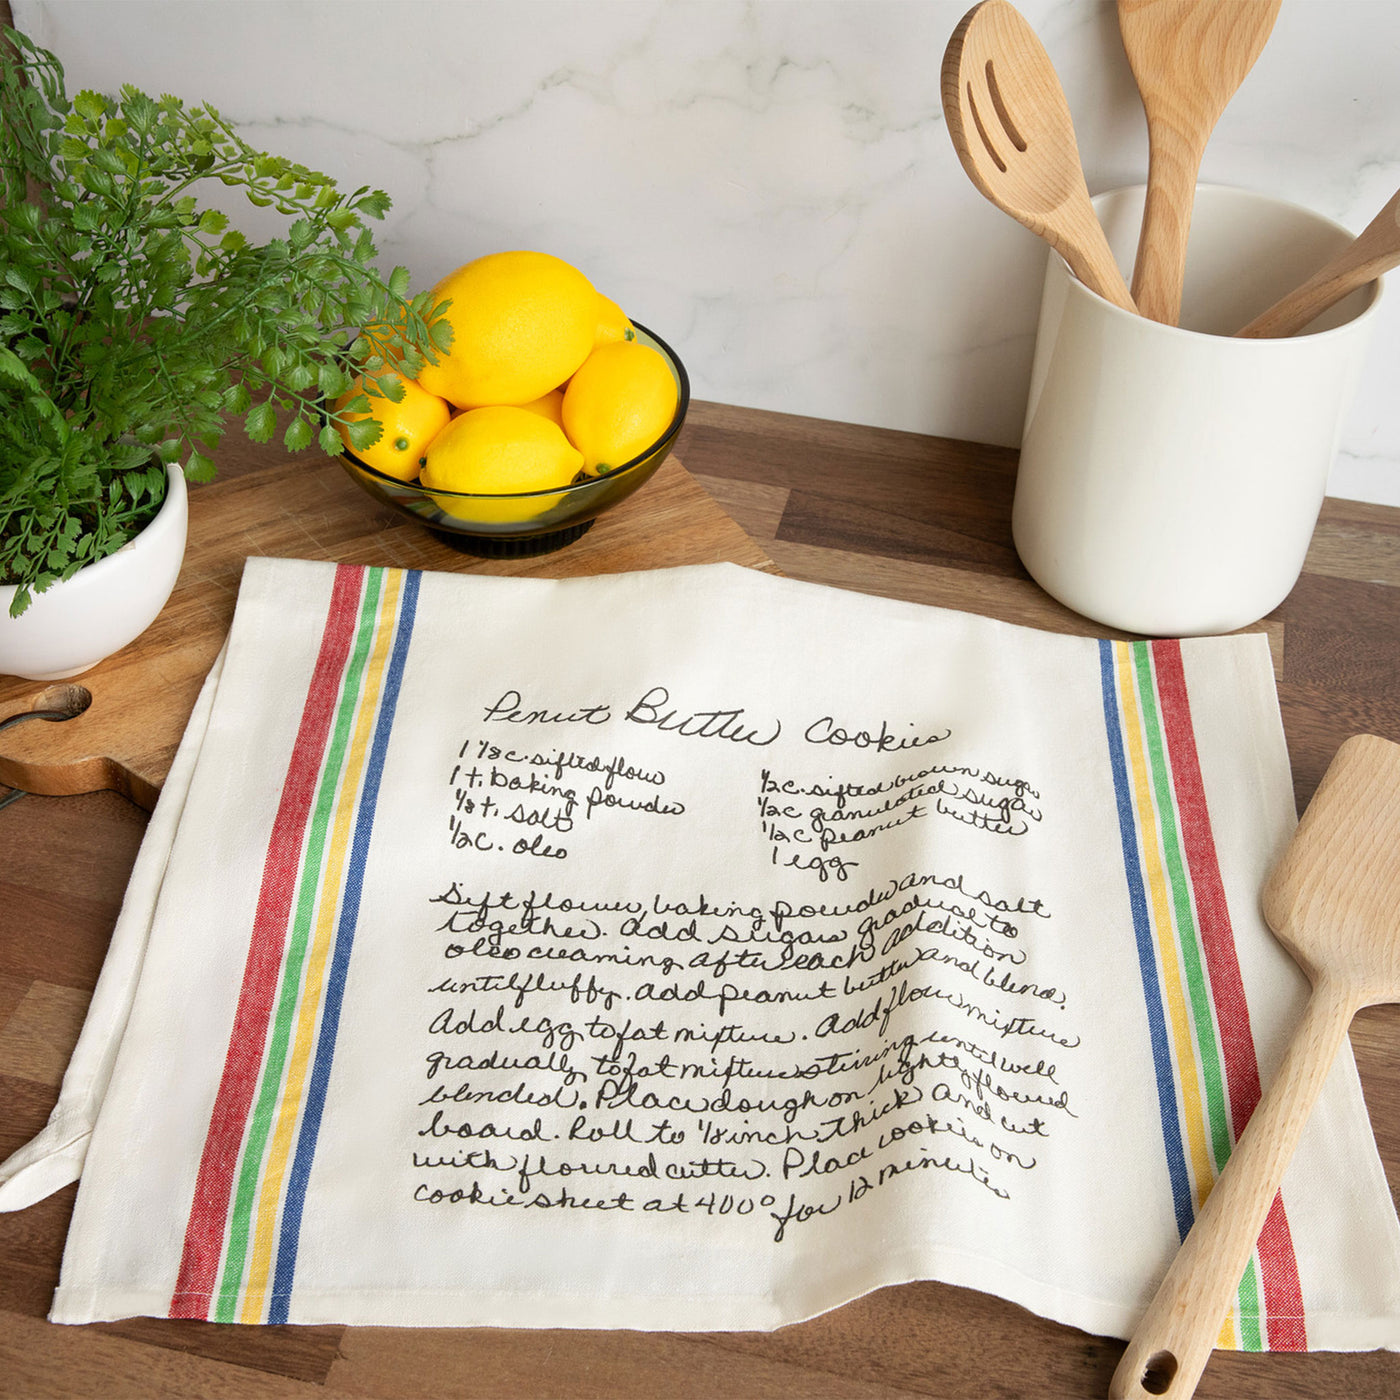 Penut Butter Cookies
1 1/8 c. sifted flour
1 t. baking powder
1/8 t. salt
1/2 c. oleo
1/2 c. sifted brown sugar
1/2 c granulated sugar
1/2 c peanut butter
1 egg
Sift flour, baking powder and salt
together. Add sugars gradual to
oleo creaming after each addition
until fluffy. Add peanut butter and blend.
Add egg to fat mixture. Add flour mixture
gradually to fat mixture stirring until well
blended. Place dough on lightly floured
board. Roll to 1/8 inch thick and cut
with floured cutter. Place cookies on
cookie sheet at 400° for 12 minutes